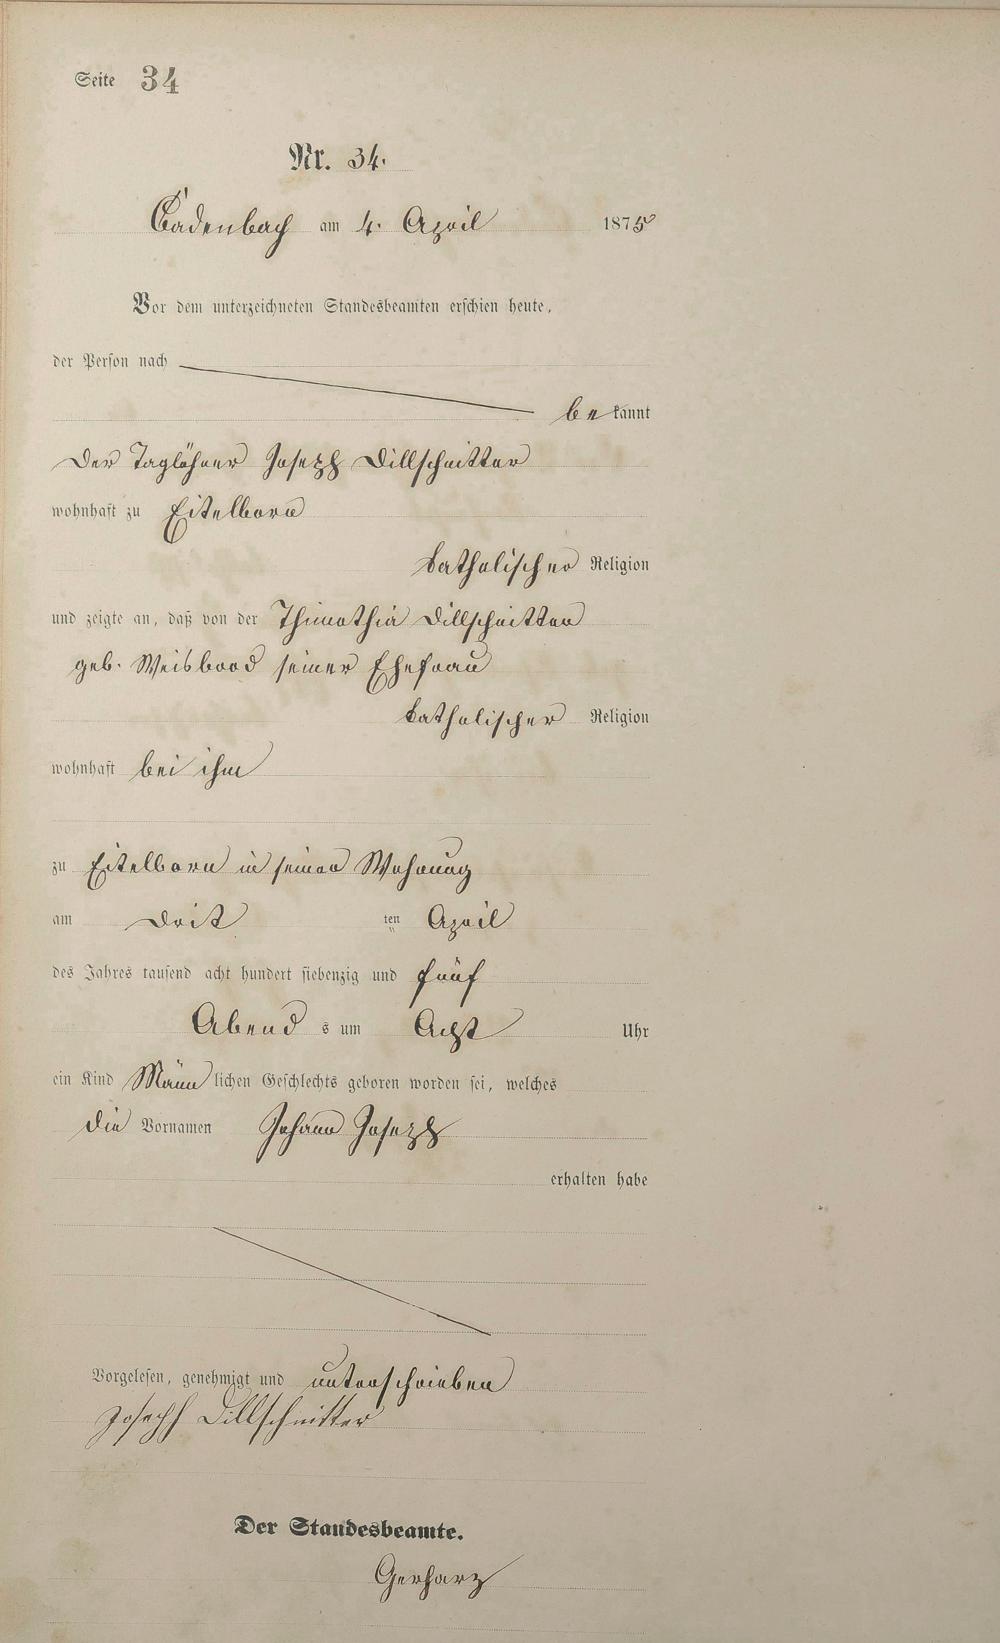 Seite 34
Nr. 34.
Cadenbach am 4. April 1875
Vor dem unterzeichneten Standesbeamten erschien heute,
der Person nach
bekannt
der Taglöhner Joseph Dillschnitter
wohnhaft zu Eitelborn
katholischer Religion
und zeigte an, daß von der Thimothia Dillschnitter
geb. Weisbrod seiner Ehefrau
katholischer Religion
wohnhaft bei ihm
zu Eitelborn in seiner Wohnung
am Drit ten April
des Jahres tausend acht hundert siebenzig und fünf
Abend s um Acht Uhr
ein Kind Männlichen Geschlechts geboren worden sei, welches
die Vornamen Johann Joseph
erhalten habe
Vorgelesen, genehmigt und unterschrieben
Joseph Dillschnitter
Der Standesbeamte.
Gerharz